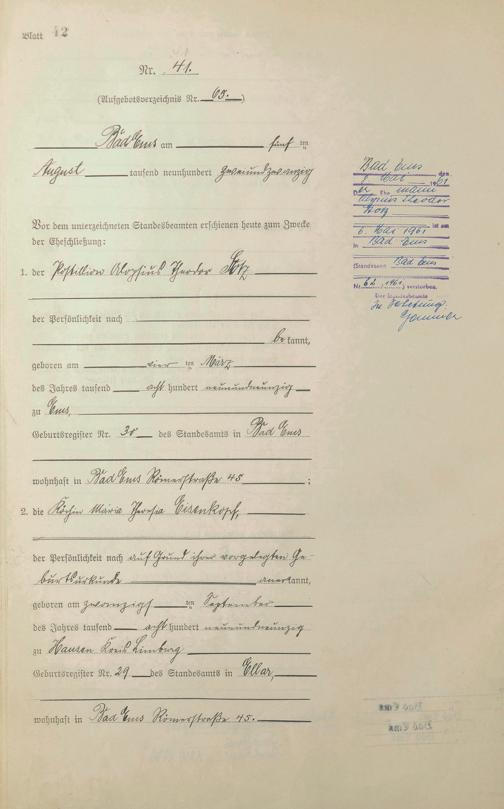 Blatt 42
Nr. 41.
(Aufgebotsverzeichnis Nr. 63.)
Bad Ems am fünf ten
August tausend neunhundert zweiundzwanzig
Vor dem unterzeichneten Standesbeamten erschienen heute zum Zwecke
der Eheschließung:
1. der Postillion Aloysius Theodor
der Persönlichkeit nach
be kannt,
geboren am vier ten März
des Jahres tausend acht hundert neunundneunzig
zu Ems,
Geburtsregister Nr. 30 des Standesamts in Bad Ems
wohnhaft in Bad Ems Römerstraße 45 ;
2. die Köchin Maria Theresia Eisenkopf,
der Persönlichkeit nach auf Grund ihrer vorgelegten Ge-
burtsurkunde anerkannt,
geboren am zwanzigs ten September
des Jahres tausend acht hundert neunundneunzig
zu Hausen Kreis Limburg
Geburtsregister Nr. 29 des Standesamts in Ellar,
wohnhaft in Bad Ems Römerstraße 45.
Bad Ems, den
8. Mai 1961
Der Ehemann
Aloysius Theodor
ist am
6. Mai 1961
in Bad Ems
(Standesamt Bad Ems
Nr. 62/1961) verstorben.
Der Standesbeamte
In Vertretung: